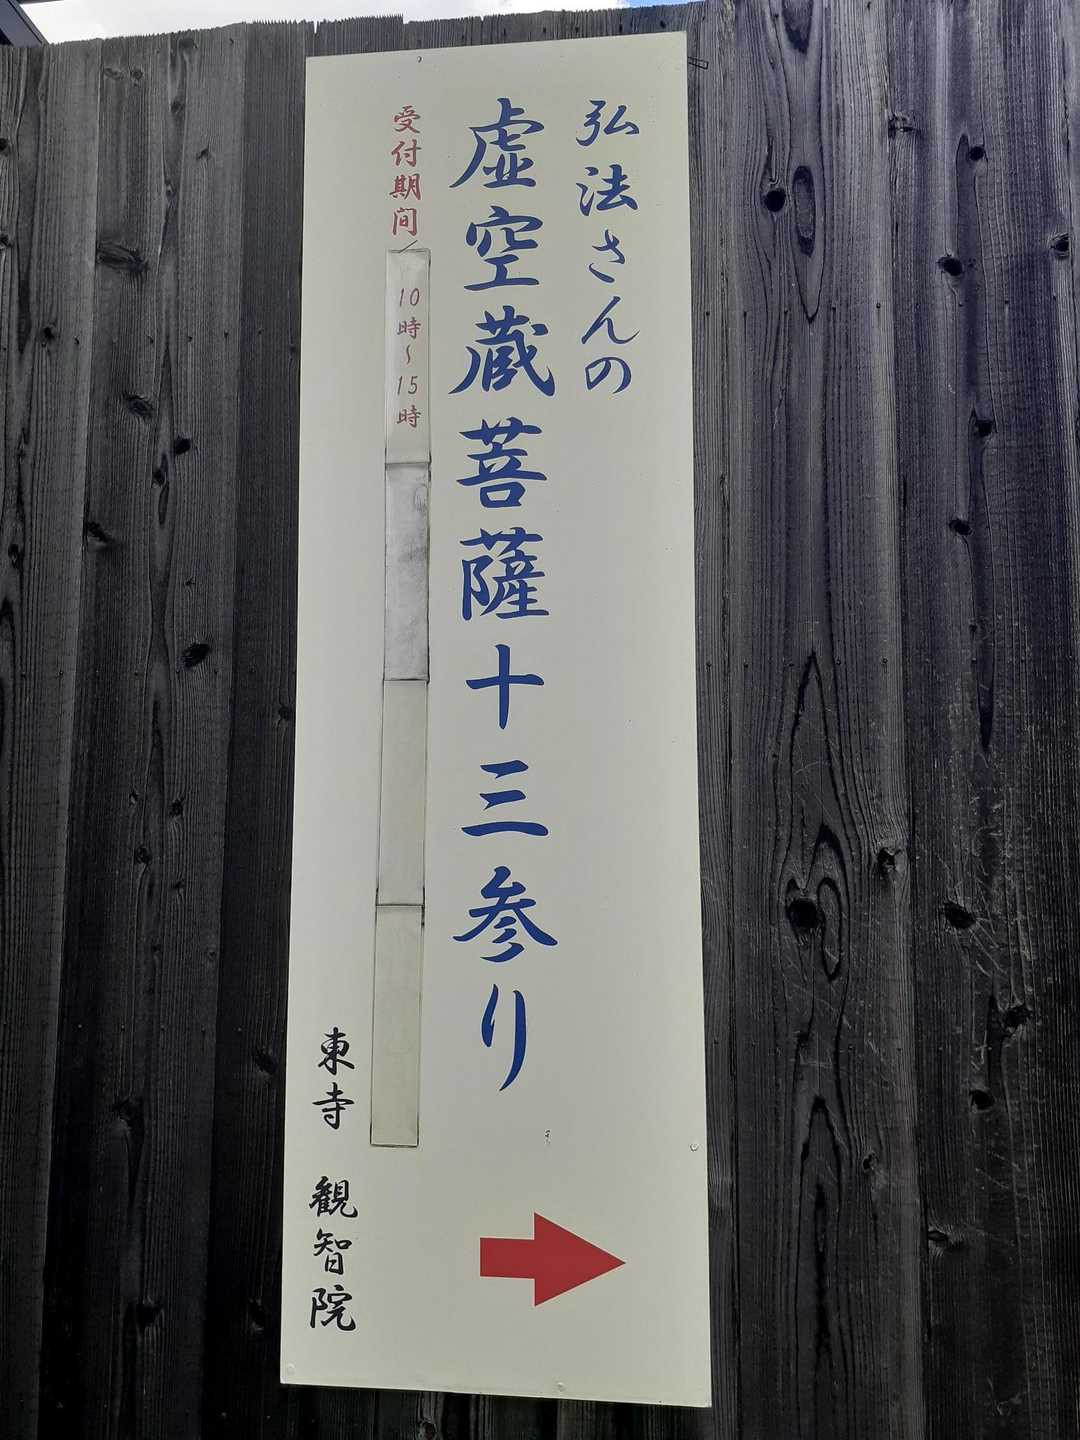 弘法さんの
虚空蔵菩薩十三参り
受付期間／10時～15時
東寺 観智院